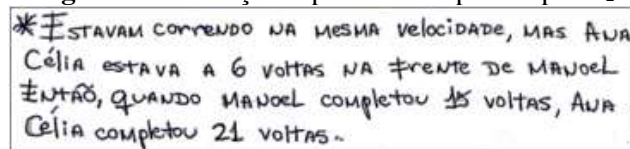 *ESTAVAM CORRENDO NA MESMA VELOCIDADE, MAS ANA
Célia ESTAVA A 6 VOLTAS NA FRENTE DE MANOEL
ENTÃO, QUANDO MANOEL COMPLETOU 15 VOLTAS, ANA
Célia COMPLETOU 21 VOLTAS.